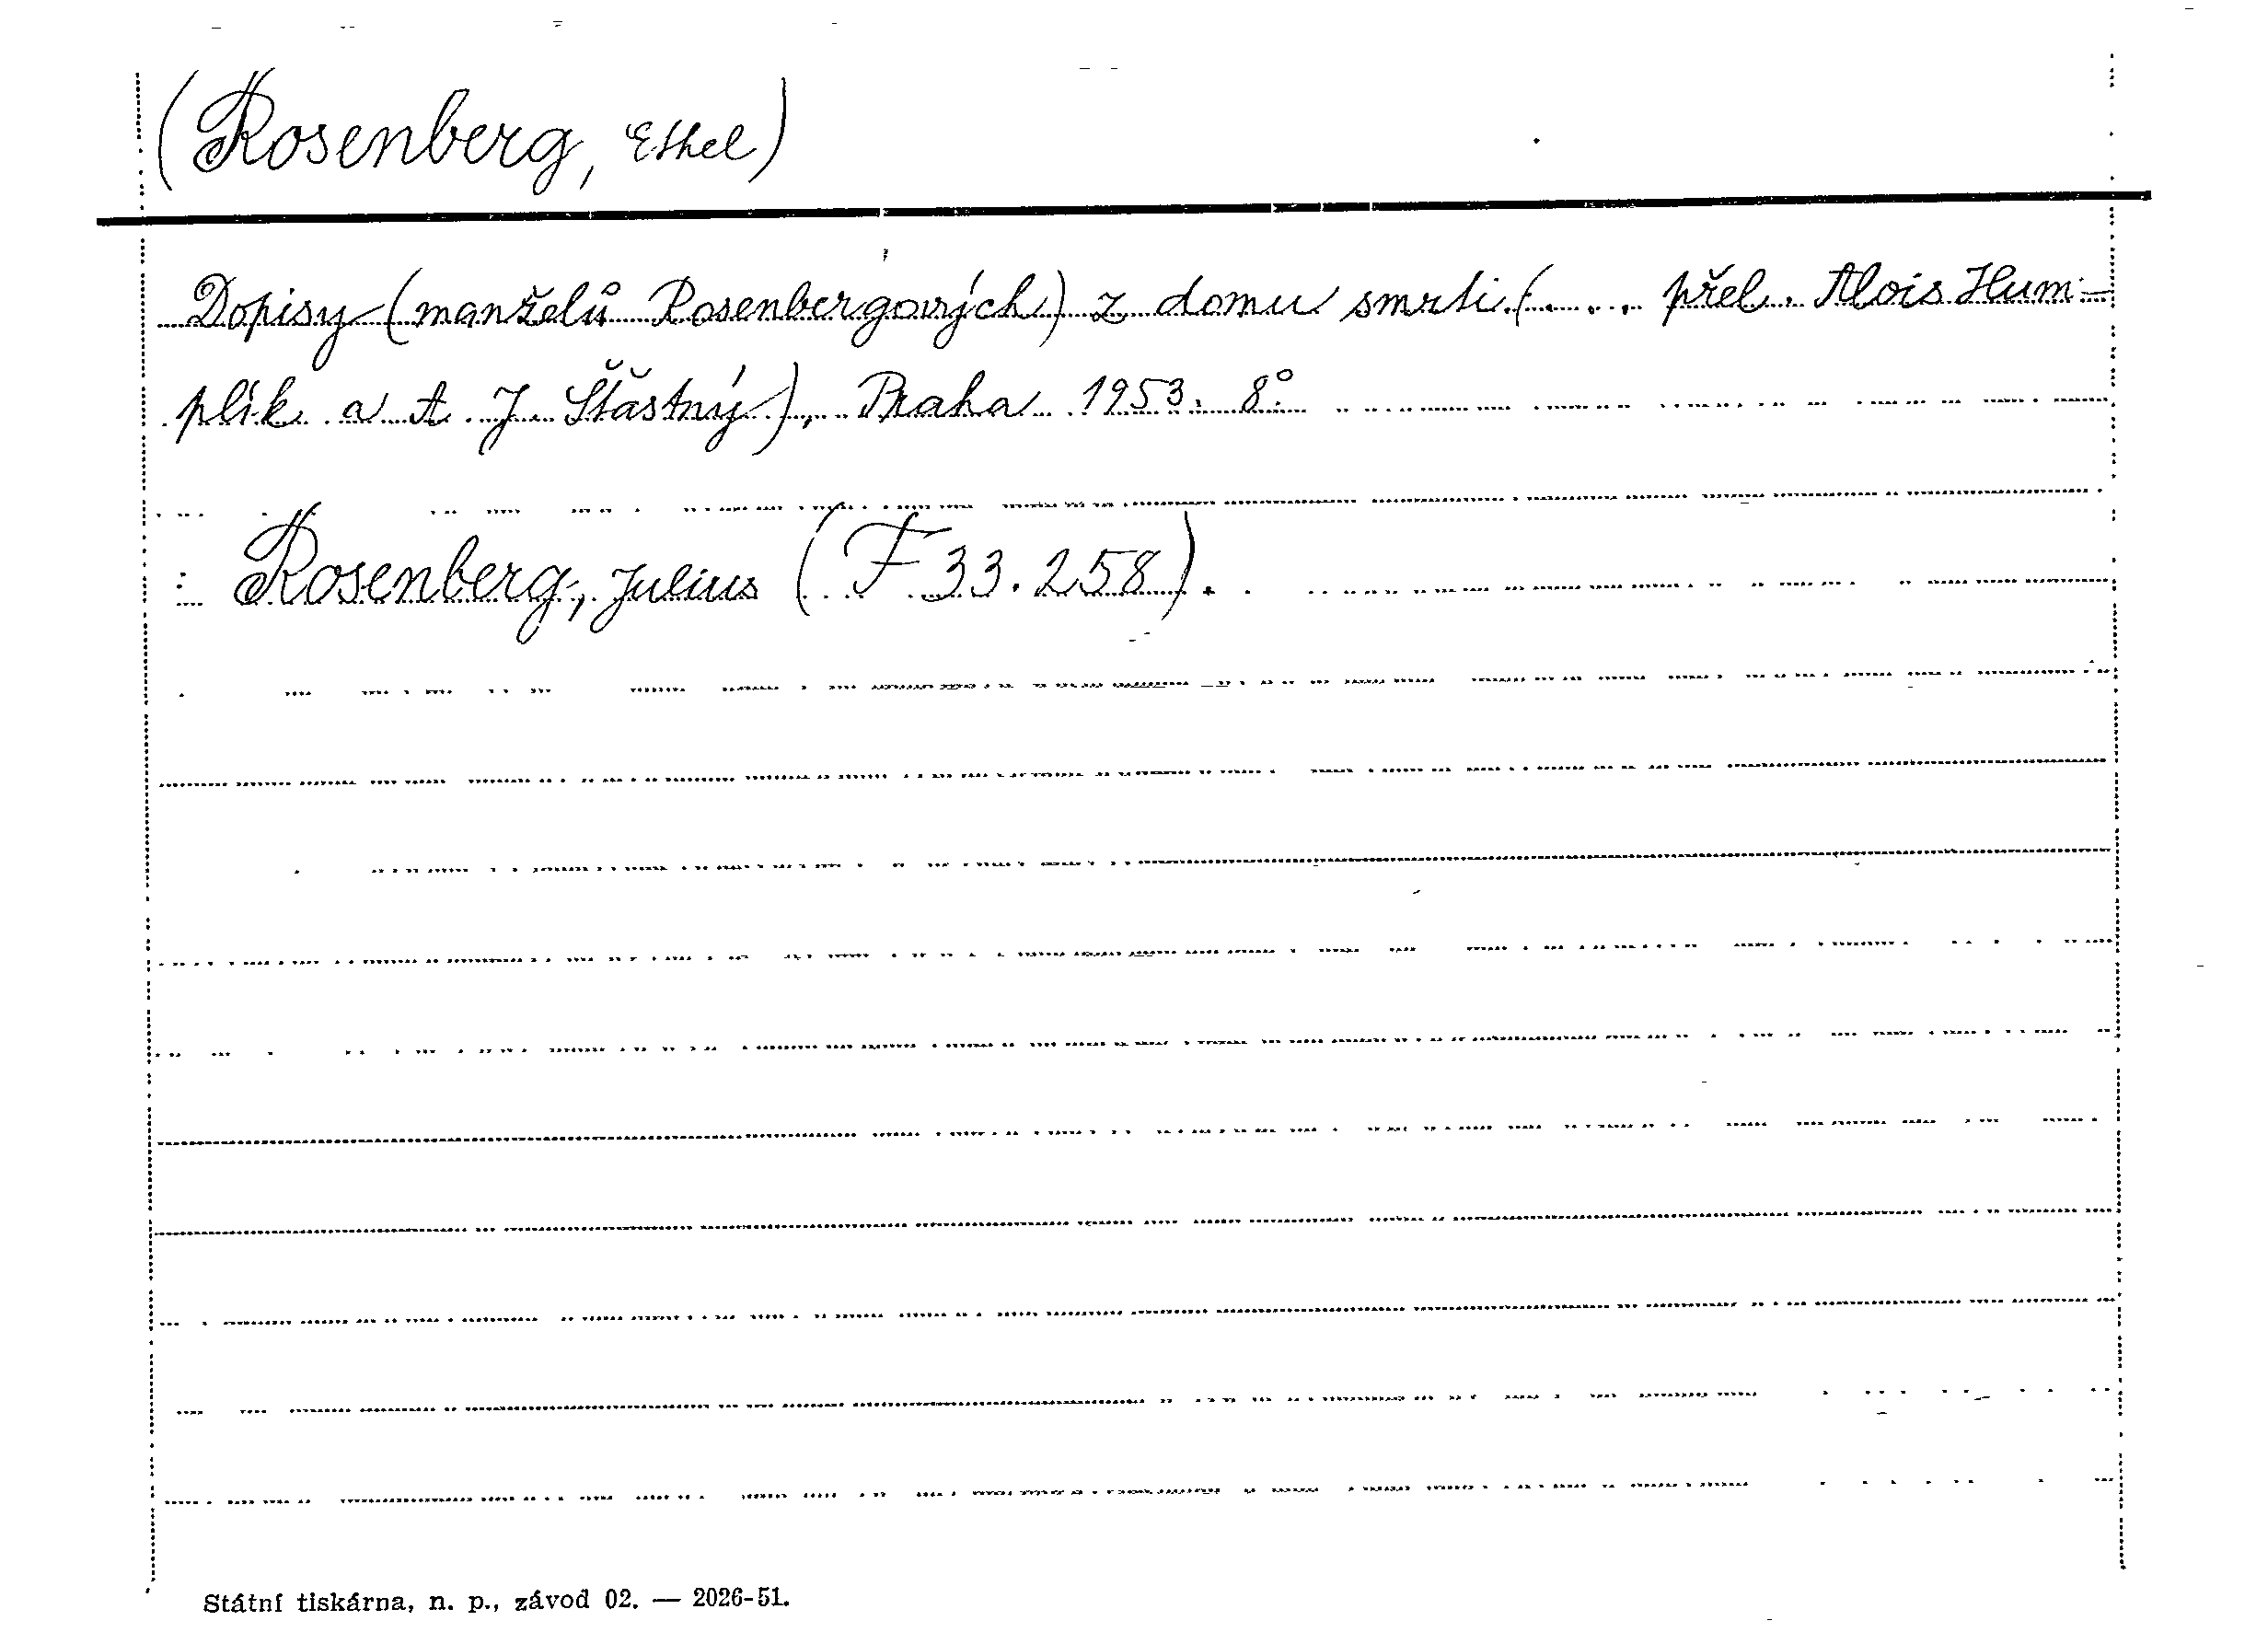 (Rosenberg, Ethel)
Dopisy (manželů Rosenbergových) z domu smrti. (. . . přel. Alois Hum-
plík a A. J. Šťastný), Praha 1953. 8°
: Rosenberg, Julius (F 33.258).
Státní tiskárna, n. p., závod 02. — 2026-51.